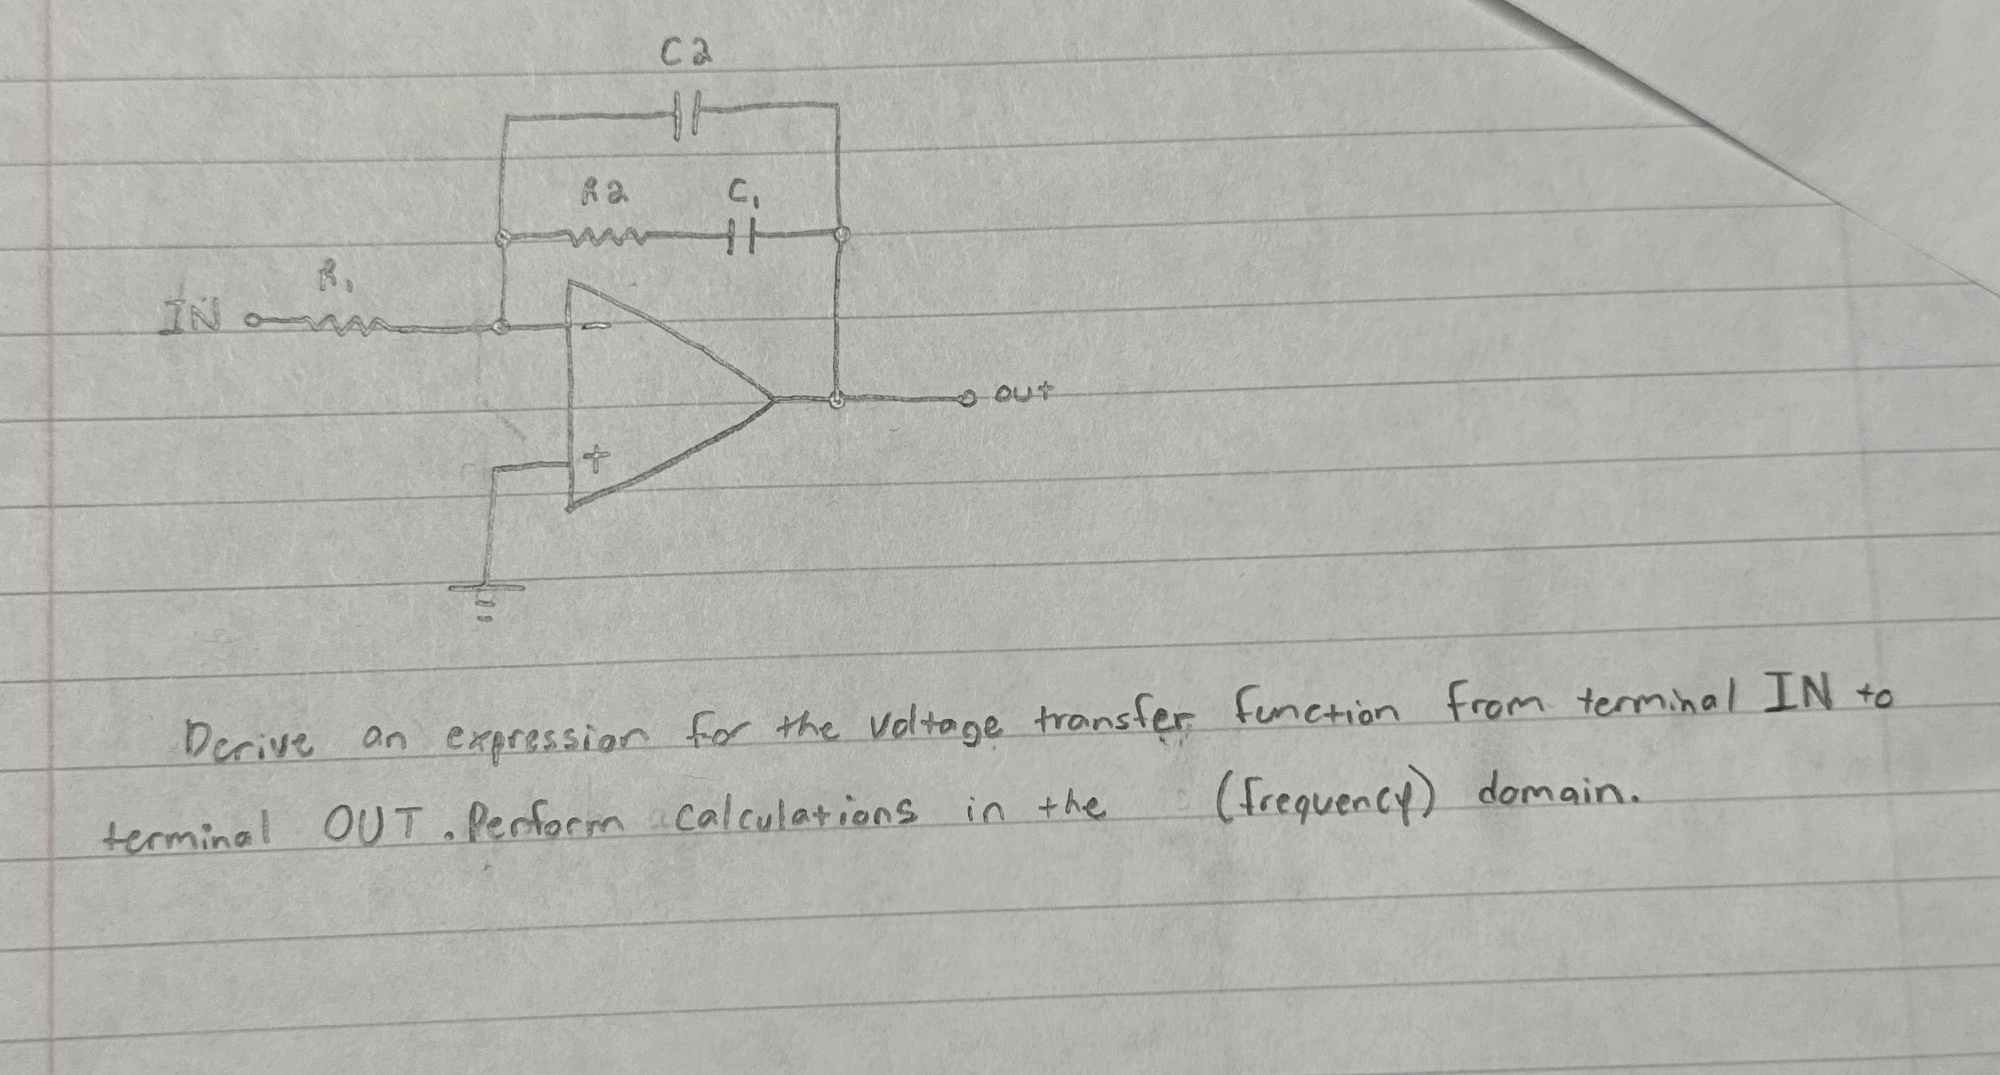 C2
R2 C1
R1
IN
-
OUT
+
Derive an expression for the voltage transfer function from terminal IN to
terminal OUT. Perform calculations in the (frequency) domain.